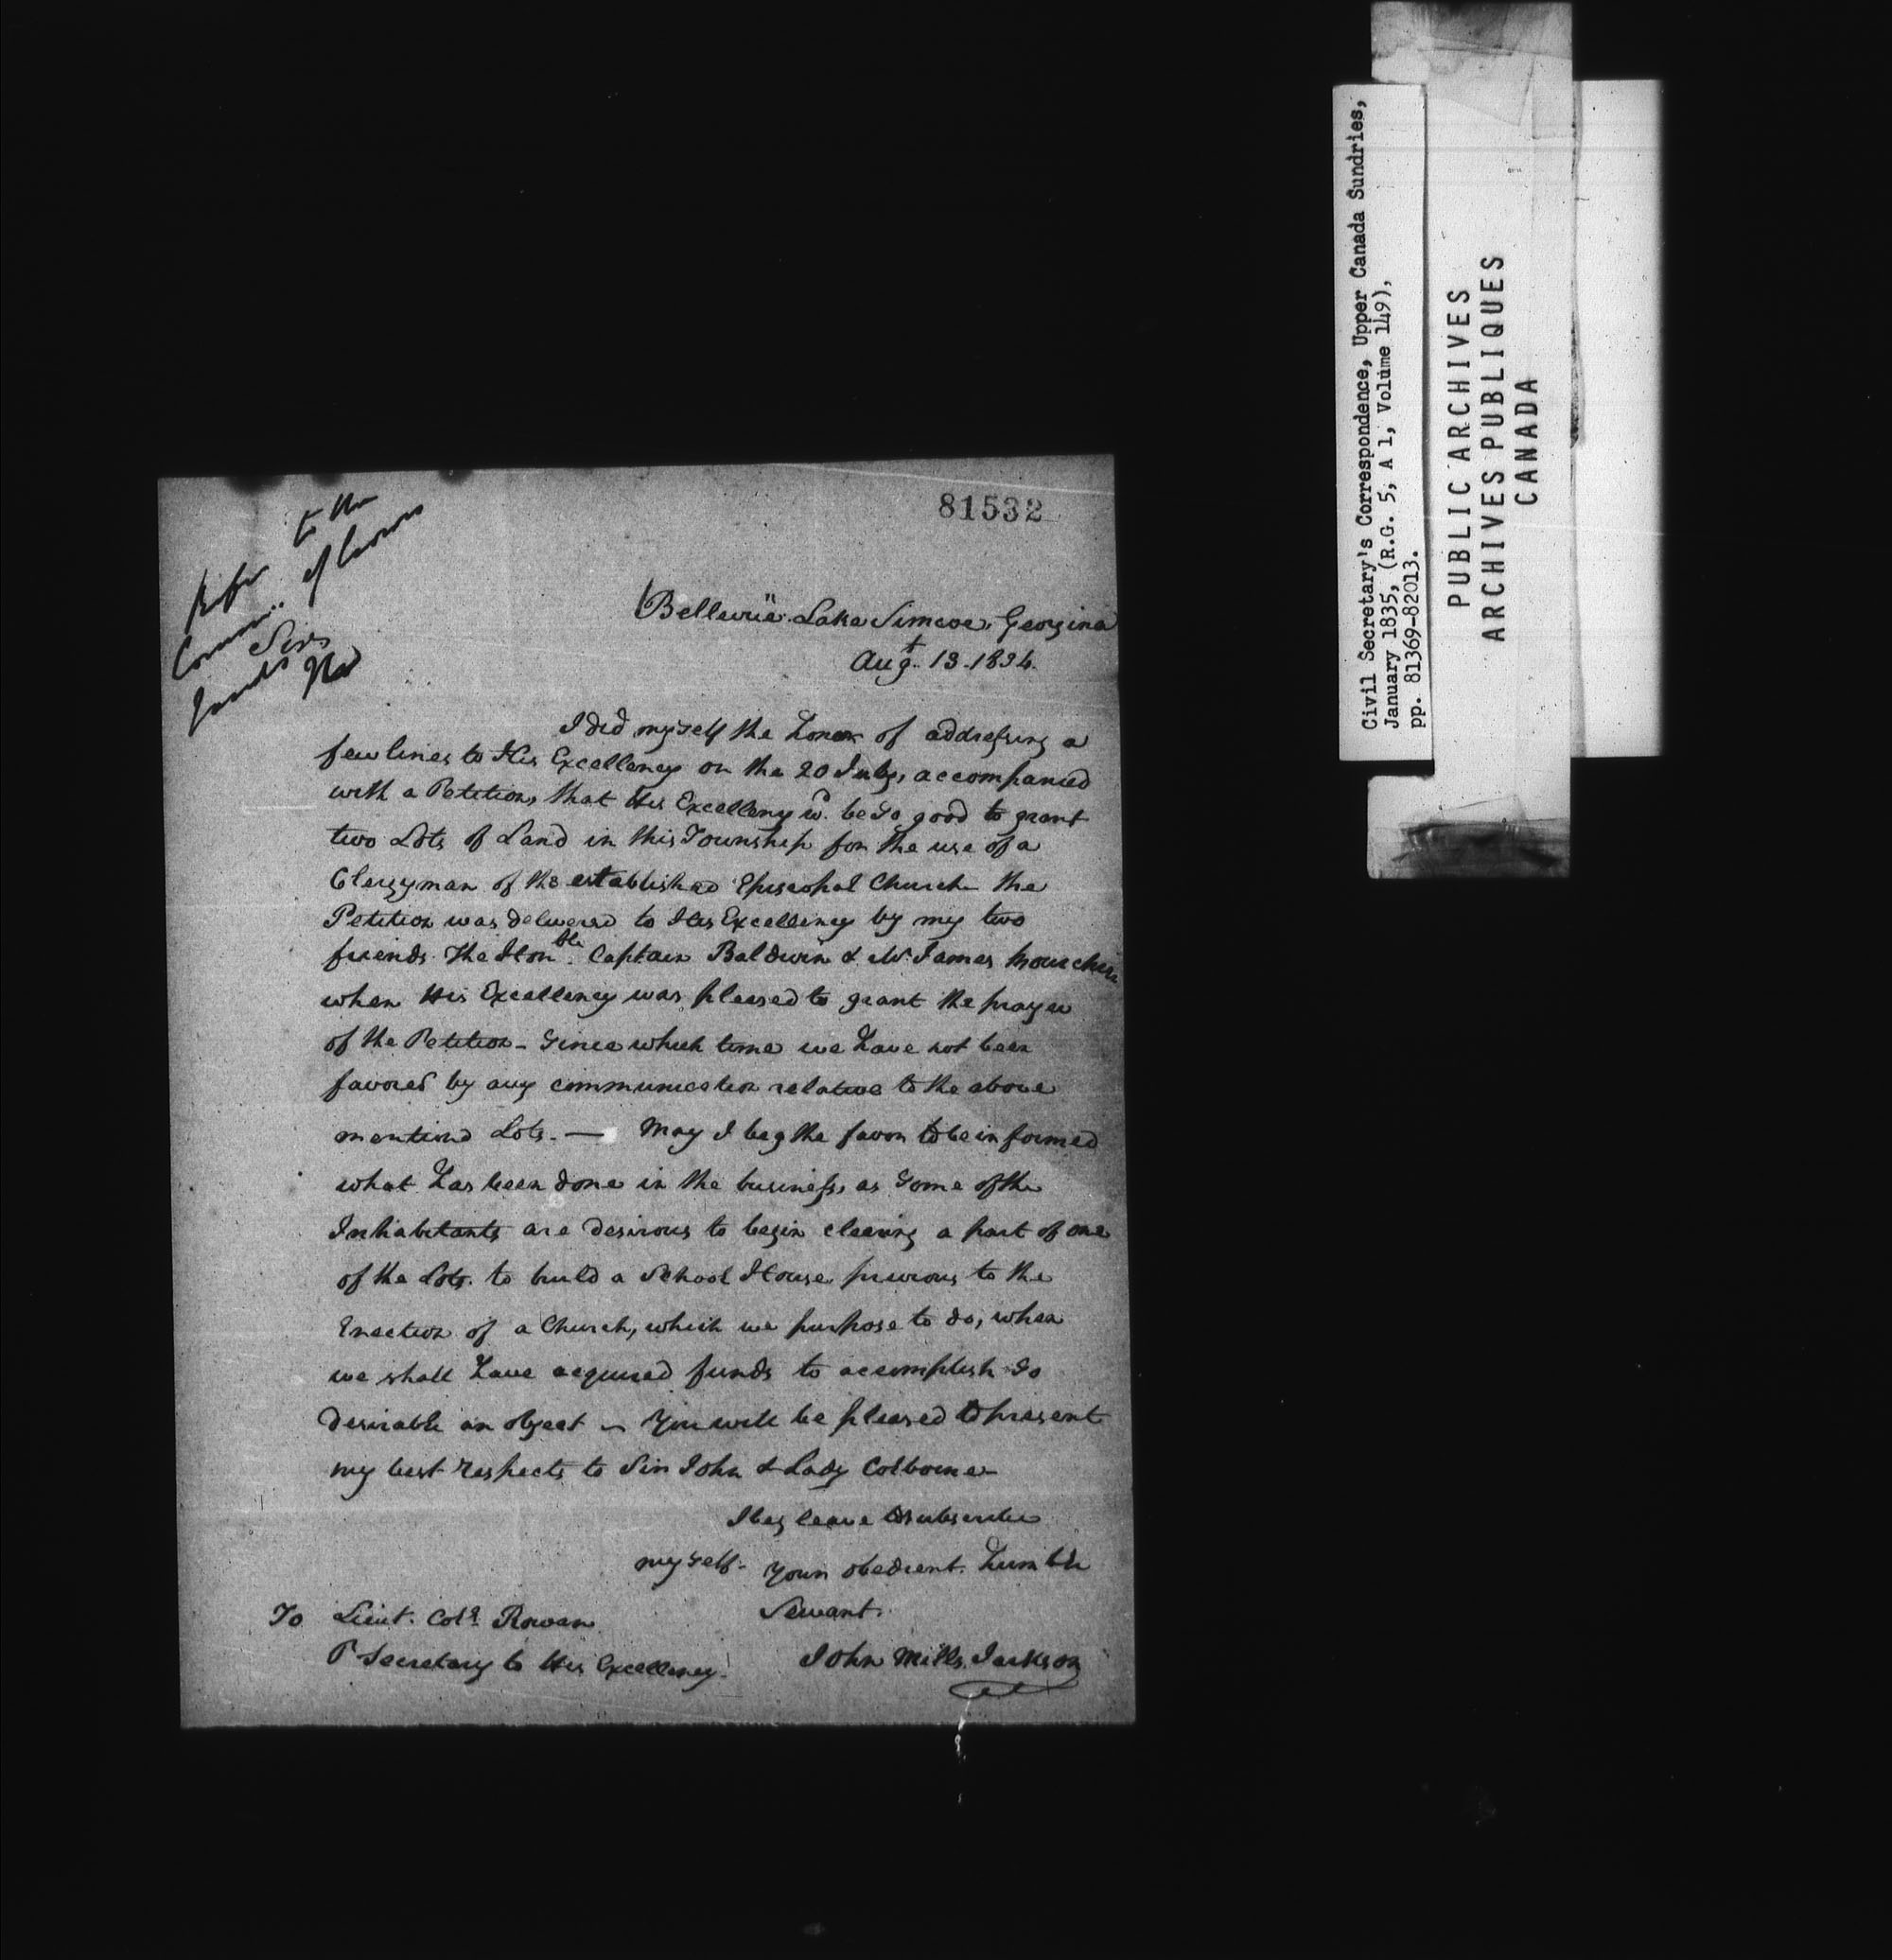 81532
Refer to the
Commr. of Crown
Lands
Bellevüe. Lake Simcoe. Georgina
Augt. 13. 1834.
Sir
I did myself the honor of addressing a
few lines to His Excellency on the 20 July, accompanied
with a Petition, that His Excellency wd. be so good to grant
two Lots of Land in this Township for the use of a
Clergyman of the established Episcopal Church the
Petition was delivered to His Excellency by my two
friends. The Honble. Captain Baldwin & Mr. James Mourchier
when His Excellency was pleased to grant the prayer
of the Petition - Since which time we have not been
favored by any communication relative to the above
mentiond Lots. — May I beg the favor to be informed
what has been done in the business, as some of the
Inhabitants are desirous to begin clearing a part of one
of the Lots. to build a School House previous to the
Erection of a Church, which we purpose to do, when
we shall have acquired funds to accomplish so
desirable an object - You will be pleased to present
my best respects to Sir John & Lady Colborne -
I beg leave to subscribe
myself - Your obedient. humble
Servant.
To Lieut. Coll. Rowan
P Secretary to His Excellency.
John Mills Jackson
Civil Secretary's Correspondence, Upper Canada Sundries,
January 1835, (R.G. 5, A 1, Volume 149),
pp. 81369-82013.
PUBLIC ARCHIVES
ARCHIVES PUBLIQUES
CANADA